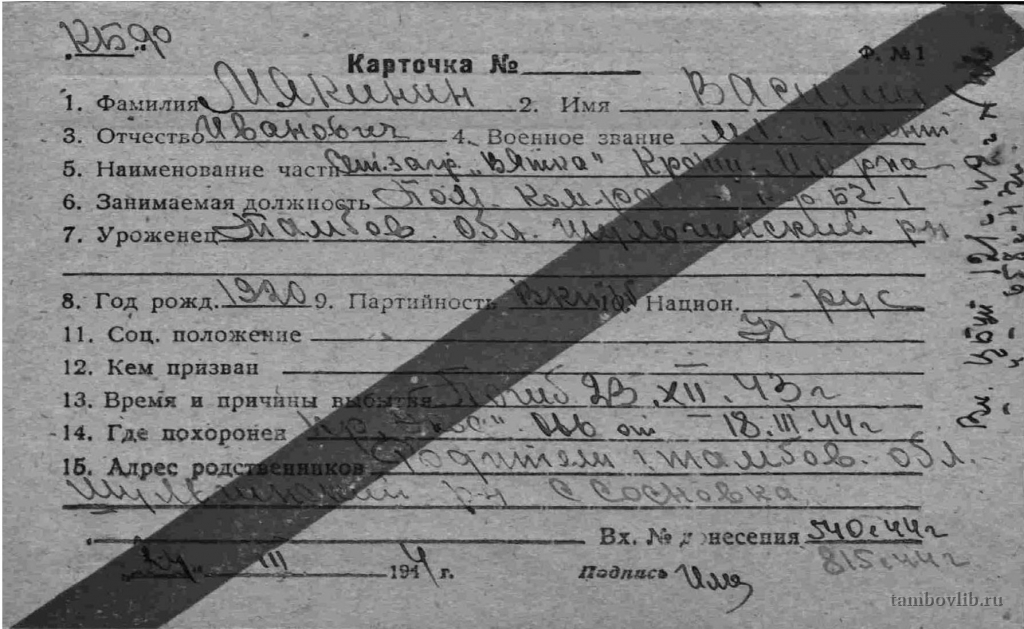 КБФ
Карточка № Ф. №1
1. Фамилия Мякинин 2. Имя Василий
3. Отчество Иванович 4. Военное звание мл. л-нт
5. Наименование части Сет.загр. "Вятка" Кронш. М.о р-на
6. Занимаемая должность Пом. Ком-ра БЧ-1
7. Уроженец Тамбов. обл. Шульгинский р-н
8. Год рожд. 1920 9. Партийность ВКП(б) 10. Национ. рус
11. Соц. положение Уч
12. Кем призван —
13. Время и причины выбытия Погиб 23.XII.43г
14. Где похоронен Пр. от 18.III.44г
15. Адрес родственников Родители: Тамбов. обл.
Шульгинский р-н с Сосновка
Вх. № донесения 540с44г
815с44г
24 III 1944 г. Подпись
tambovlib.ru